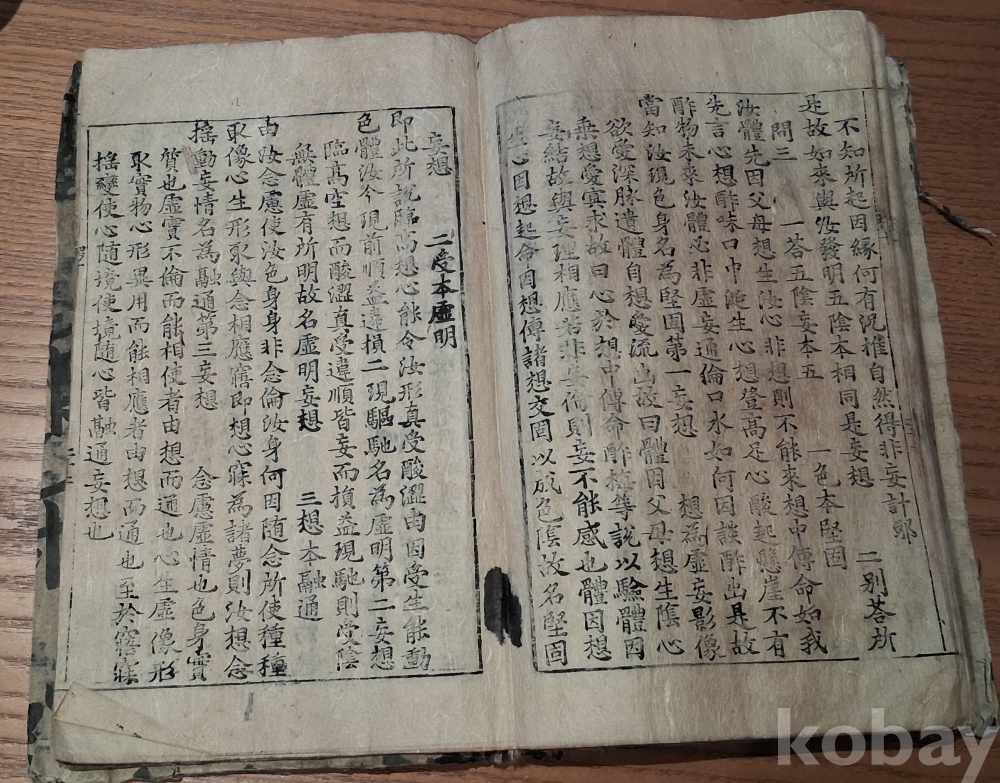 不知所起因緣何有況推自然得非妄計耶
是故如來與汝發明五陰本相同是妄想 二別荅所
問三 一荅五陰妄本五 一色本堅固
汝體先因父母想生汝心非想則不能來想中傳命如我
先言心想酢味口中涎生心想登高足心酸起懸崖不有
酢物未來汝體必非虛妄通倫口水如何因談酢出是故
當知汝現色身名為堅固第一妄想 想為虛妄影像
欲愛深脉遺體自想愛流出故曰體因父母想生陰心
乘想愛冥求故曰心於想中傳命酢梅等說以驗體因
妄結故與妄理相應若非妄倫則妄不能感也體因想
生心因想起命因想傳諸想交固以成色陰故名堅固
妄想 二受本虛明
即此所說臨高想心能令汝形真受酸澀由因受生能動
色體汝今現前順益違損二現驅馳名為虛明第二妄想
臨高空想而酸澀真受違順皆妄而損益現馳則受陰
無體虛有所明故名虛明妄想 三想本融通
由汝念慮使汝色身身非念倫汝身何因隨念所使種種
取像心生形取與念相應寤即想心寐為諸夢則汝想念
搖動妄情名為融通第三妄想 念慮虛情也色身實
質也虛實不倫而能相使者由想而通也心生虛像形
取實物心形異用而能相應者由想而通也至於寤寐
搖變使心隨境使境隨心皆融通妄想也
kobay